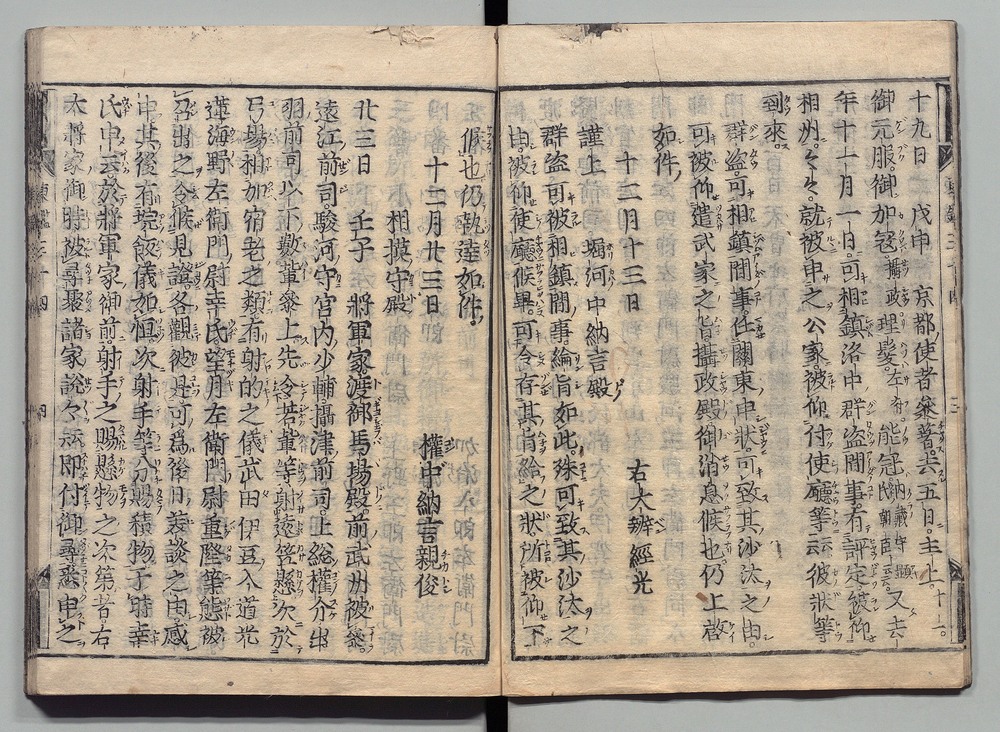 十九日 戊申 京都使者參着去五日主上十一
御元服御加冠攝政理髮左府能冠又去
年十一月一日可相鎭洛中群盜間事有評定被仰
相州々々就被申之公家被仰付使廳等云彼狀等
到來
群盜可相鎭間事任關東申狀可致其沙汰之由
可被仰遣武家之旨攝政殿御消息候也仍上啓
如件
十二月十三日 右大辨經光
謹上 堀河中納言殿
群盜可被相鎭間事綸旨如此殊可致其沙汰之
由被仰使廳候畢可令存其旨給之狀所被仰下
候也仍執達如件
十二月廿三日 權中納言親俊
相摸守殿
廿三日 壬子 將軍家渡御馬場殿前武州被參
遠江前司駿河守宮内少輔攝津前司上総權介出
羽前司以下數輩參上先令若輩等射遠笠懸次於
弓場相加宿老之類有射的之儀武田伊豆入道光
蓮海野左衞門尉幸氏望月左衞門尉重隆等態被
召出之令候見證各觀彼是可爲後日美談之由感
申其後有埦飯儀如恒次射手等分賜積物于時幸
氏申云於將軍家御前射手之賜懸物之次第昔右
大將家御時被尋聚諸家說々云即付御尋悉申之